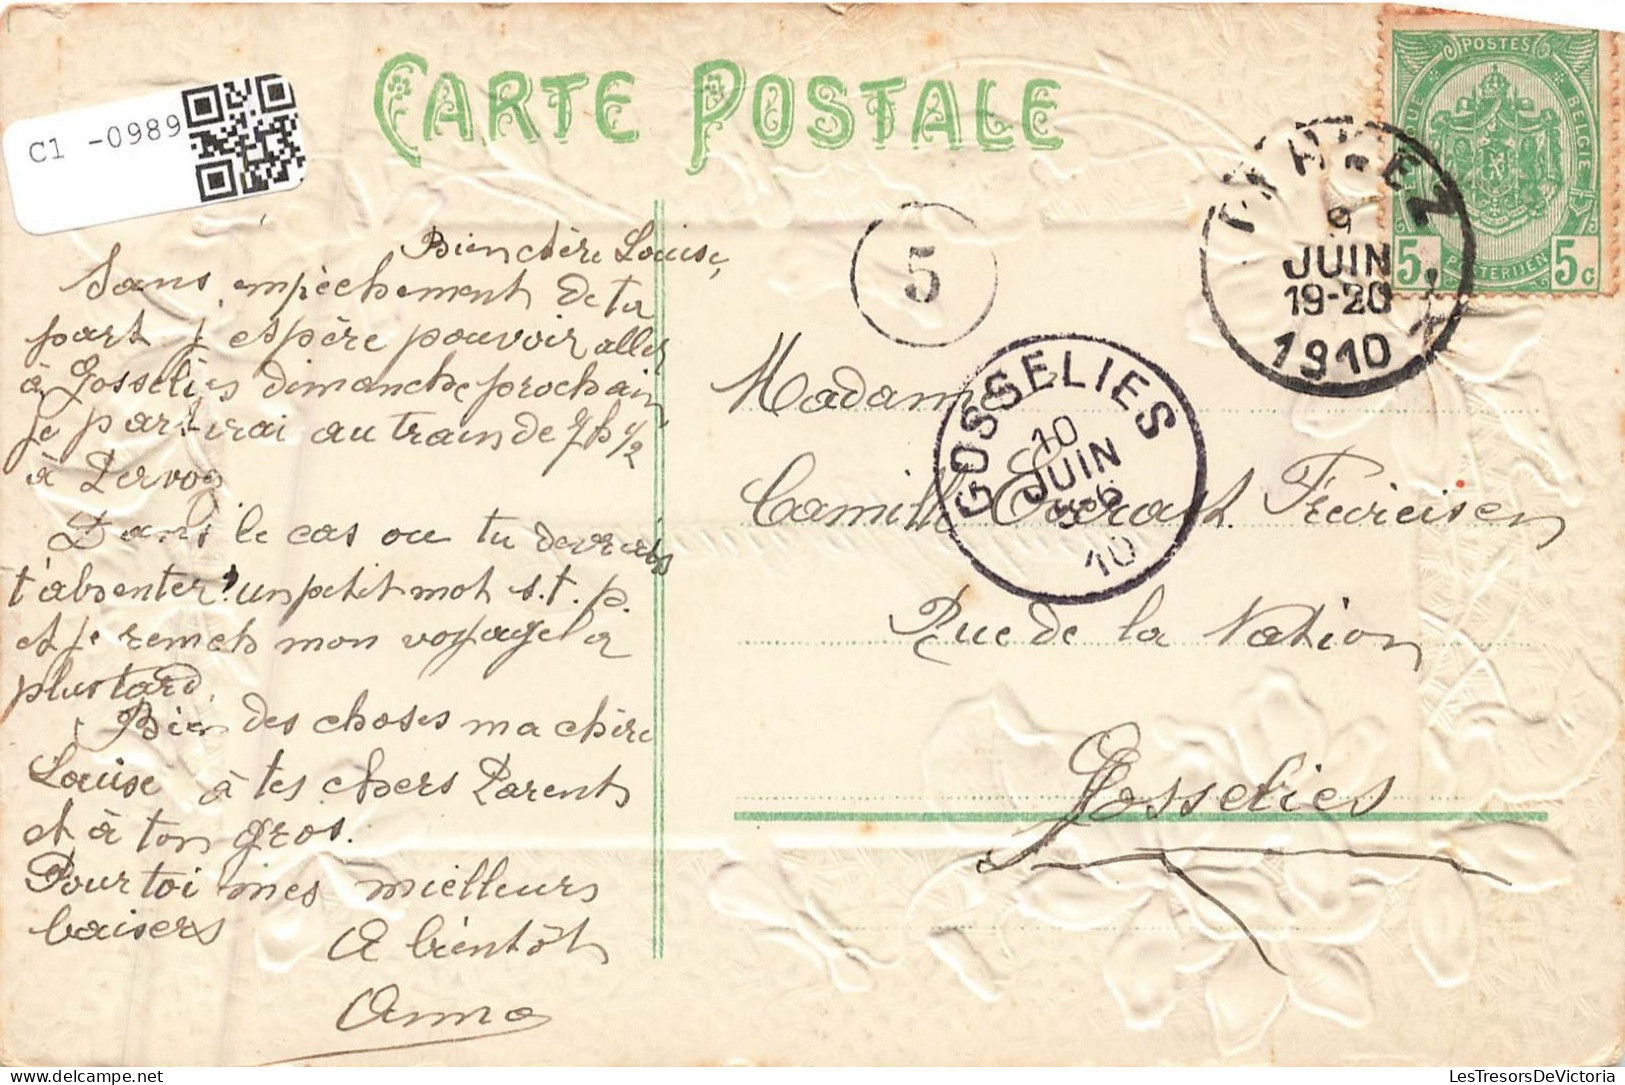 CARTE POSTALE
C1 -0989
POSTES
BELGIE
POSTERIJEN
5 5c
9
JUIN
19-20
1910
5
GOSSELIES
10
JUIN
5-6
10
Bien chère Louise,
Sans empêchement de ta
part j'espère pouvoir aller
à Gosselies dimanche prochain
je partirai au train de 7h 1/2
à Perwez
Dans le cas ou tu devrais
t'absenter un petit mot s.t.p.
et je remets mon voyage à
plus tard.
Bien des choses ma chère
Louise à tes chers Parents
et à ton gros.
Pour toi mes meilleurs
baisers
A bientôt
Anna
Madame
Camille
Rue de la Nation
Gosselies
LesTresorsDeVictoria